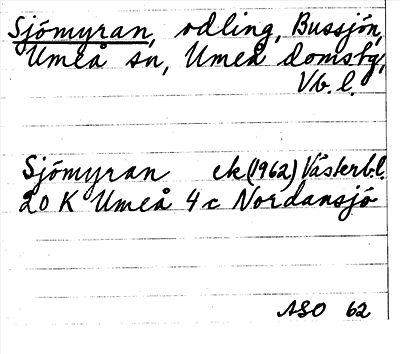 Sjömyran, odling, Bussjön,
Umeå sn, Umeå domsbg,
Vb. l.
Sjömyran ek (1962) Västerb.l.
20 K Umeå 4 c Nordansjö
ASO 62